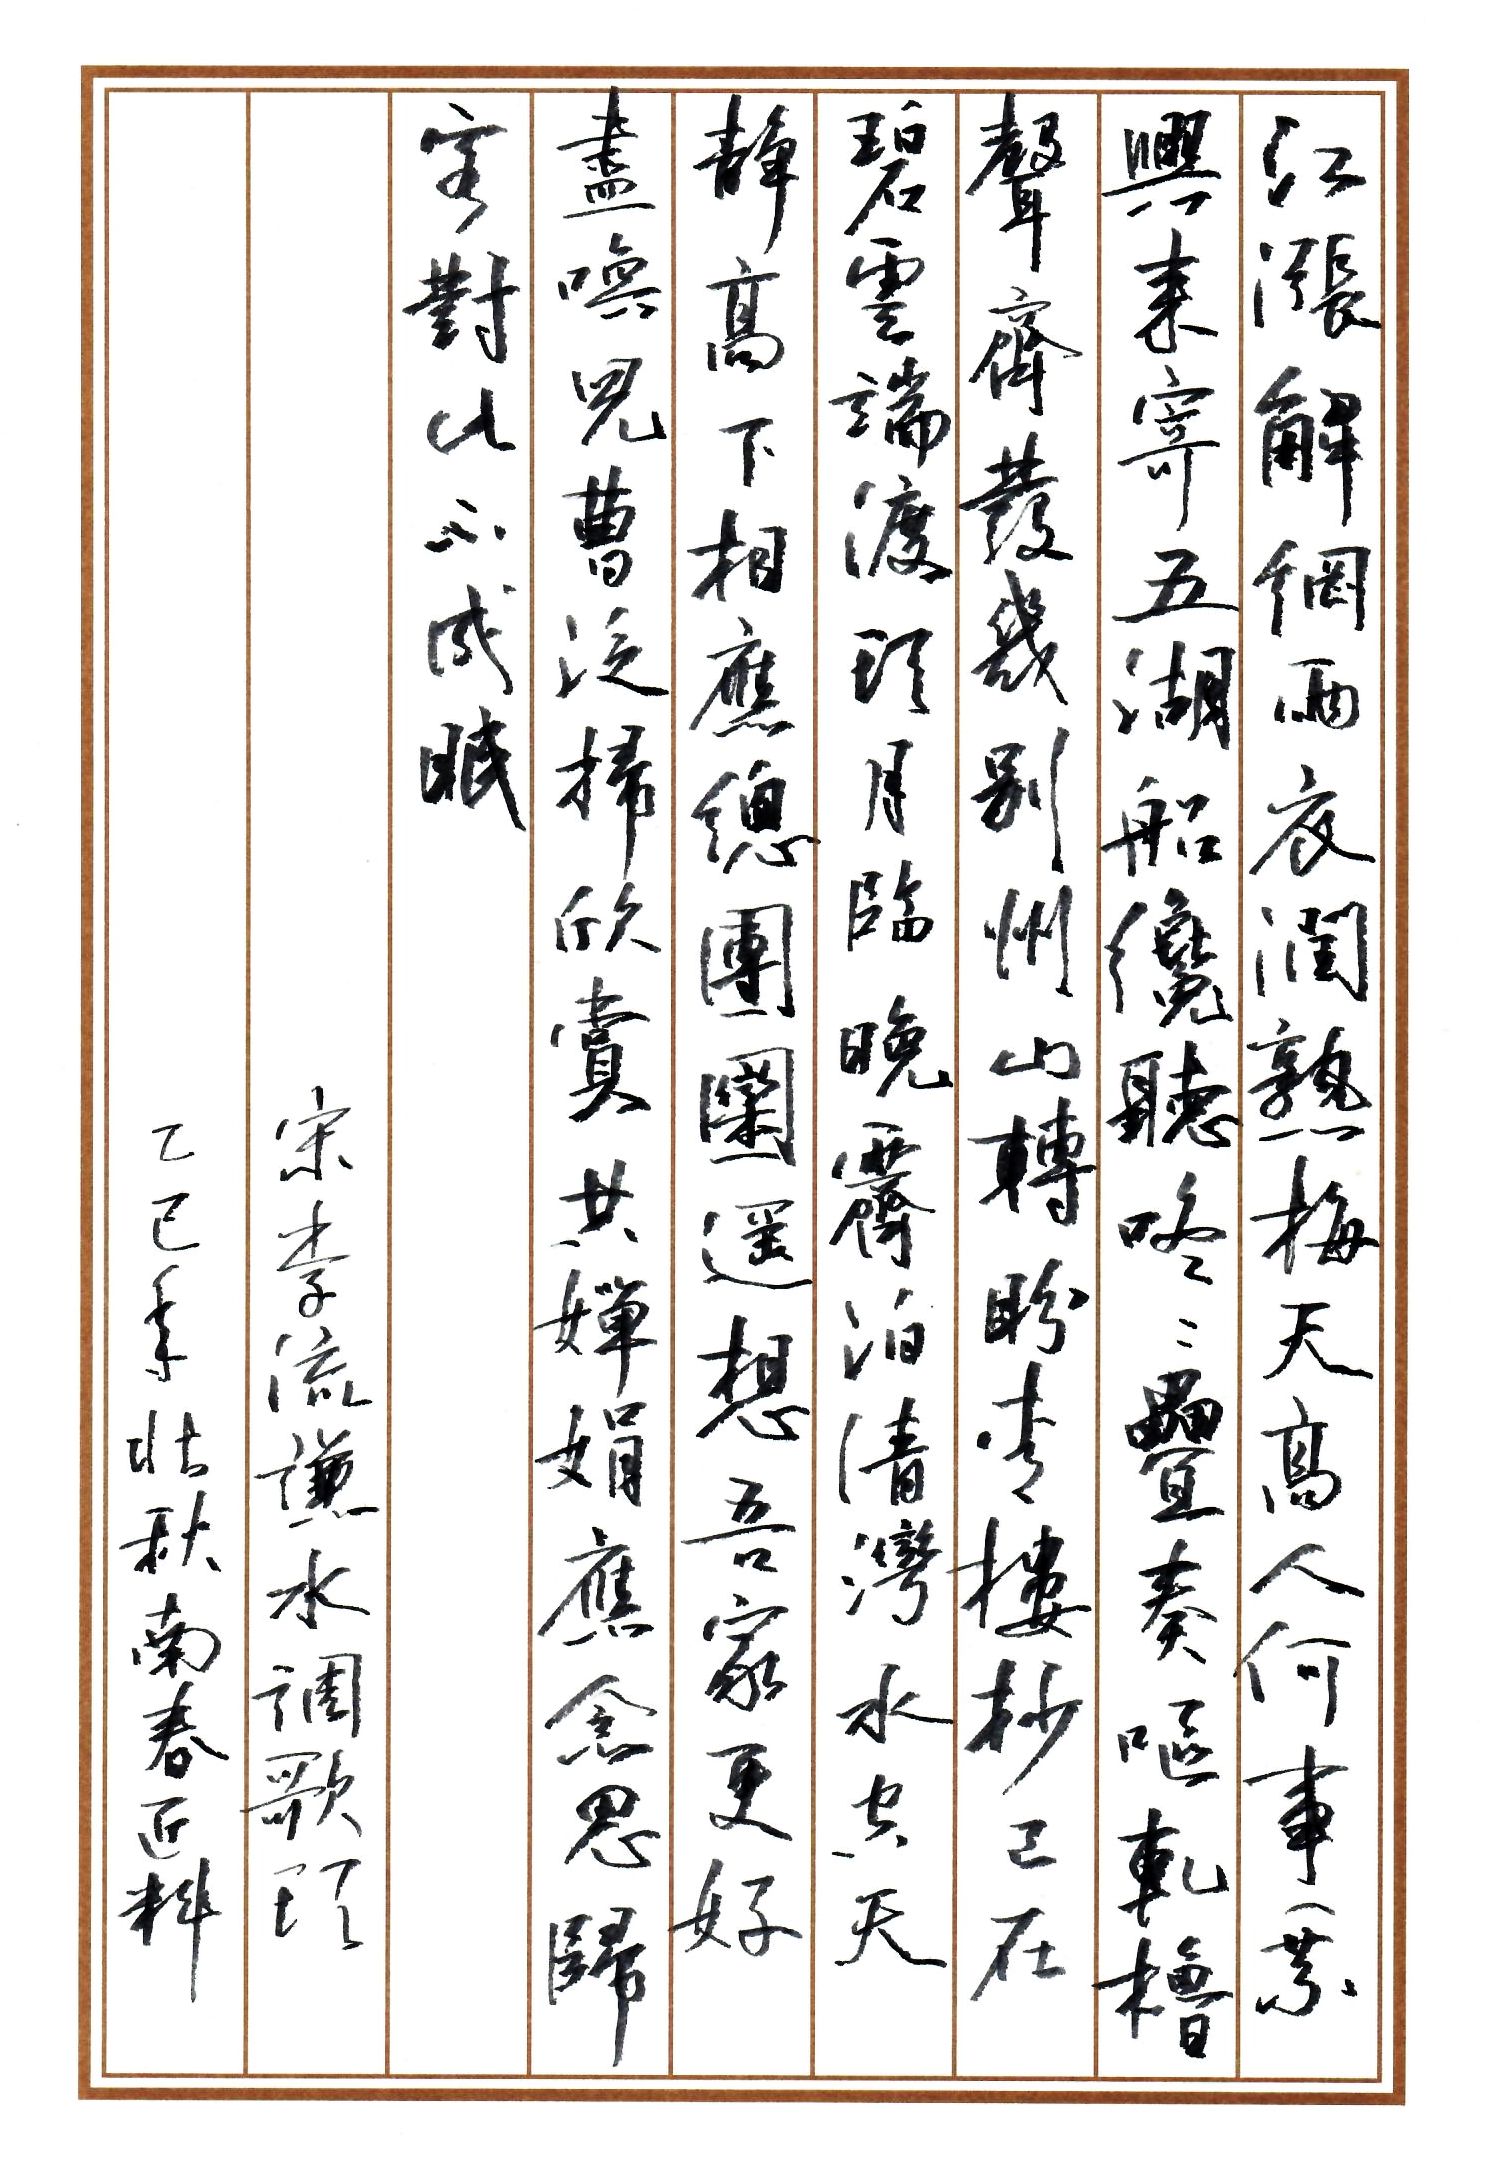 江漲解網雨衣潤熟梅天高人何事乘
興來寄五湖船纔聽咚〻疊奏嘔軋櫓
聲齊發幾別州山轉盼青樓杪已在
碧雲端渡頭月臨晚霽泊清灣水空天
靜高下相應總團圞遥想吾家更好
盡喚兒曹泛掃欣賞共嬋娟應念思歸
客對此不成眠
宋李流謙水調歌頭
乙巳年壮秋南春匠料